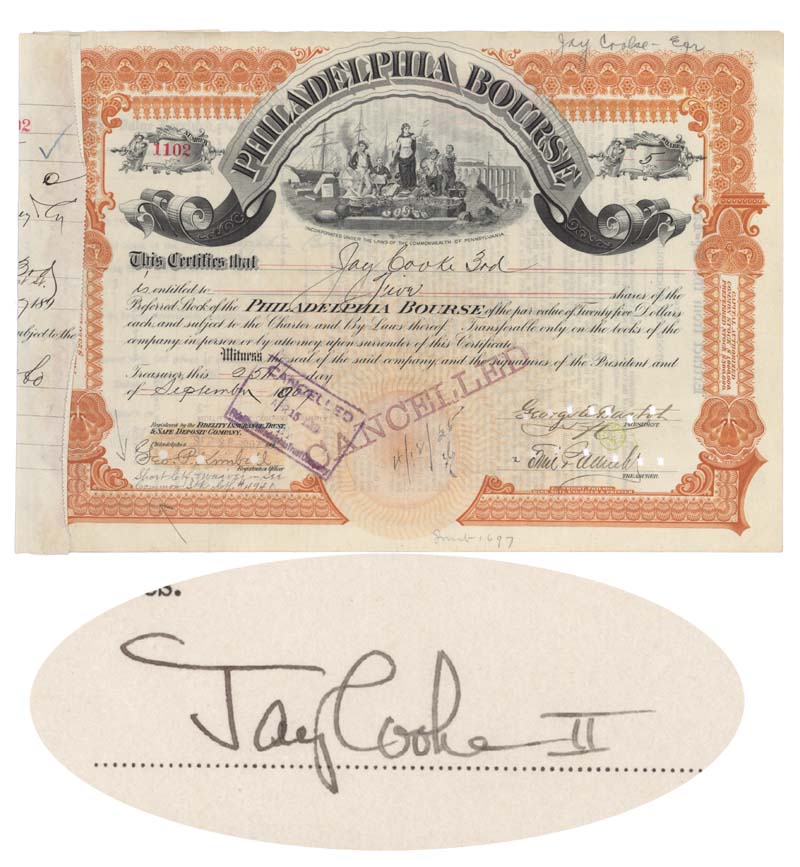 Jay Cooke - Esq
PHILADELPHIA BOURSE
NUMBER
1102
SHARES
5
INCORPORATED UNDER THE LAWS OF THE COMMONWEALTH OF PENNSYLVANIA
This Certifies that Jay Cooke 3rd
is entitled to Five shares of the
Preferred Stock of the PHILADELPHIA BOURSE of the par value of Twenty five Dollars
each and subject to the Charter and By Laws thereof. Transferable only on the books of the
company in person or by attorney upon surrender of this Certificate.
Witness the seal of the said company, and the signatures of the President and
Treasurer, this 25th day
of September
CANCELLED
CANCELLED
Registered by the FIDELITY INSURANCE, TRUST
& SAFE DEPOSIT COMPANY.
Philadelphia
Registration Officer
PRESIDENT
TREASURER
CAPITAL AUTHORIZED
02
subject to the
es.
Jay Cooke II